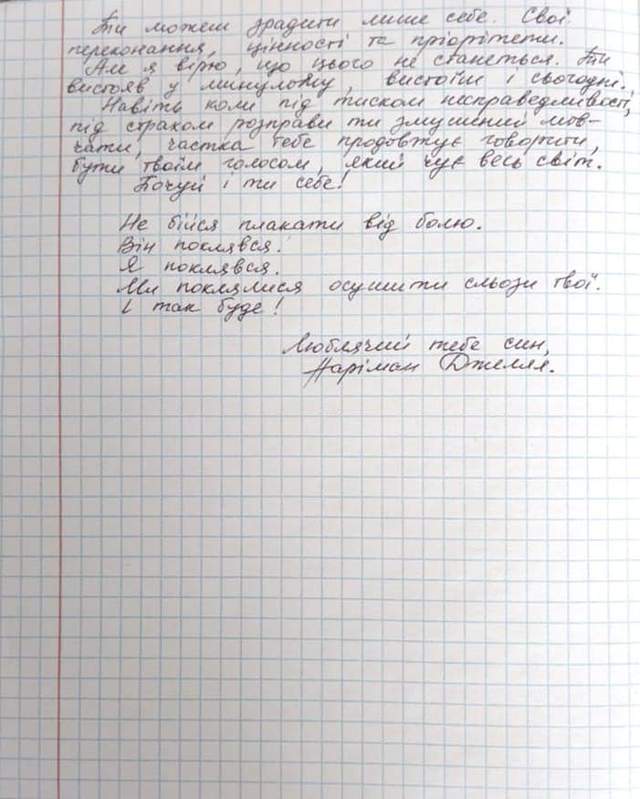 Ти можеш зрадити лише себе. Свої
переконання, цінності та пріорітети.
Але я вірю, що цього не станеться. Ти
вистояв у минулому, вистоїш і сьогодні.
Навіть коли під тиском несправедливості,
під страхом розправи ти змушений мов-
чати, частка тебе продовжує говорити,
бути твоїм голосом, який чує весь світ.
Почуй і ти себе!
Не бійся плакати від болю.
Він поклявся.
Я поклявся.
Ми поклялися осушити сльози твої.
І так буде!
Люблячий тебе син,
Наріман Джелял.